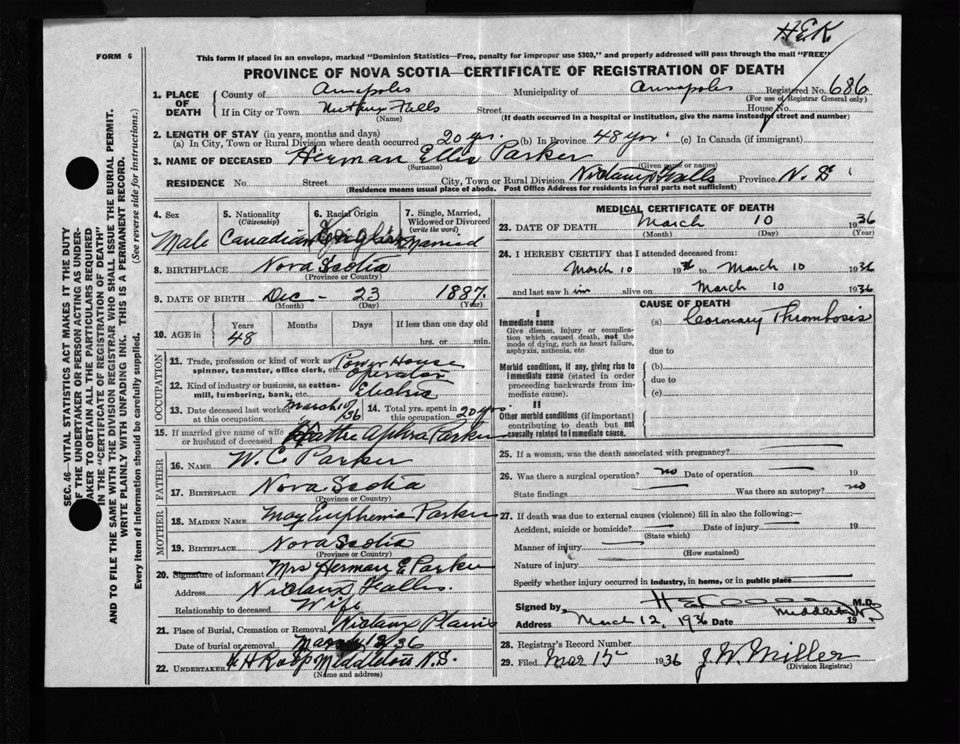 HEK
FORM 6
This form if placed in an envelope, marked "Dominion Statistics—Free, penalty for improper use $300," and properly addressed will pass through the mail "FREE"
PROVINCE OF NOVA SCOTIA—CERTIFICATE OF REGISTRATION OF DEATH
1. PLACE OF DEATH
County of Annapolis Municipality of Annapolis Registered No. 686
(For use of Registrar General only)
If in City or Town Falls Street House No.
(Name) (If death occurred in a hospital or institution, give the name instead of street and number)
2. LENGTH OF STAY (in years, months and days)
(a) In City, Town or Rural Division where death occurred 20 yr. (b) In Province 48 yr. (c) In Canada (if immigrant)
3. NAME OF DECEASED Herman Ellis Parker
(Surname) (Given name or names)
RESIDENCE No. Street City, Town or Rural Division Nictaux Falls Province N.S.
(Residence means usual place of abode. Post Office Address for residents in rural parts not sufficient)
4. Sex
Male
5. Nationality
(Citizenship)
Canadian
6. Racial Origin
English
7. Single, Married, Widowed or Divorced
(write the word)
Married
8. BIRTHPLACE Nova Scotia
(Province or Country)
9. DATE OF BIRTH Dec - 23 1887.
(Month) (Day) (Year)
10. AGE in Years Months Days If less than one day old
48 hrs. or min.
OCCUPATION
11. Trade, profession or kind of work as spinner, teamster, office clerk, etc. Power House Operator
12. Kind of industry or business, as cotton-mill, lumbering, bank, etc. Electric
13. Date deceased last worked at this occupation March 10/36
14. Total yrs. spent in this occupation 20 yrs
15. If married give name of wife or husband of deceased Parker
FATHER
16. NAME W. C. Parker
17. BIRTHPLACE Nova Scotia
(Province or Country)
MOTHER
18. MAIDEN NAME May Euphemia Parker
19. BIRTHPLACE Nova Scotia
(Province or Country)
20. Signature of informant Mrs Herman E Parker
Address Nictaux Falls.
Relationship to deceased Wife
21. Place of Burial, Cremation or Removal Nictaux Plains
Date of burial or removal March /36
22. UNDERTAKER Middleton N.S.
(Name and address)
MEDICAL CERTIFICATE OF DEATH
23. DATE OF DEATH March 10 1936
(Month) (Day) (Year)
24. I HEREBY CERTIFY that I attended deceased from:
March 10 1936 to March 10 1936
and last saw him alive on March 10 1936
CAUSE OF DEATH
I
Immediate cause
Give disease, injury or complication which caused death, not the mode of dying, such as heart failure, asphyxia, asthenia, etc.
(a) Coronary Thrombosis
due to
Morbid conditions, if any, giving rise to immediate cause (stated in order proceeding backwards from immediate cause).
(b)
due to
(c)
II
Other morbid conditions (if important) contributing to death but not causally related to immediate cause.
25. If a woman, was the death associated with pregnancy?
26. Was there a surgical operation? no Date of operation 19
State findings Was there an autopsy? no
27. If death was due to external causes (violence) fill in also the following:—
Accident, suicide or homicide? Date of injury 19
(State which)
Manner of injury
(How sustained)
Nature of injury
Specify whether injury occurred in industry, in home, or in public place
Signed by M.D.
Address Middleton NS
March 12, 1936 Date 19
28. Registrar's Record Number
29. Filed Mar 15 1936 J. W. Miller
(Division Registrar)
SEC. 46—VITAL STATISTICS ACT MAKES IT THE DUTY
OF THE UNDERTAKER OR PERSON ACTING AS UNDERTAKER TO OBTAIN ALL THE PARTICULARS REQUIRED
IN THE "CERTIFICATE OF REGISTRATION OF DEATH"
AND TO FILE THE SAME WITH THE DIVISION REGISTRAR WHO SHALL ISSUE THE BURIAL PERMIT.
WRITE PLAINLY WITH UNFADING INK. THIS IS A PERMANENT RECORD.
Every item of information should be carefully supplied. (See reverse side for instructions.)